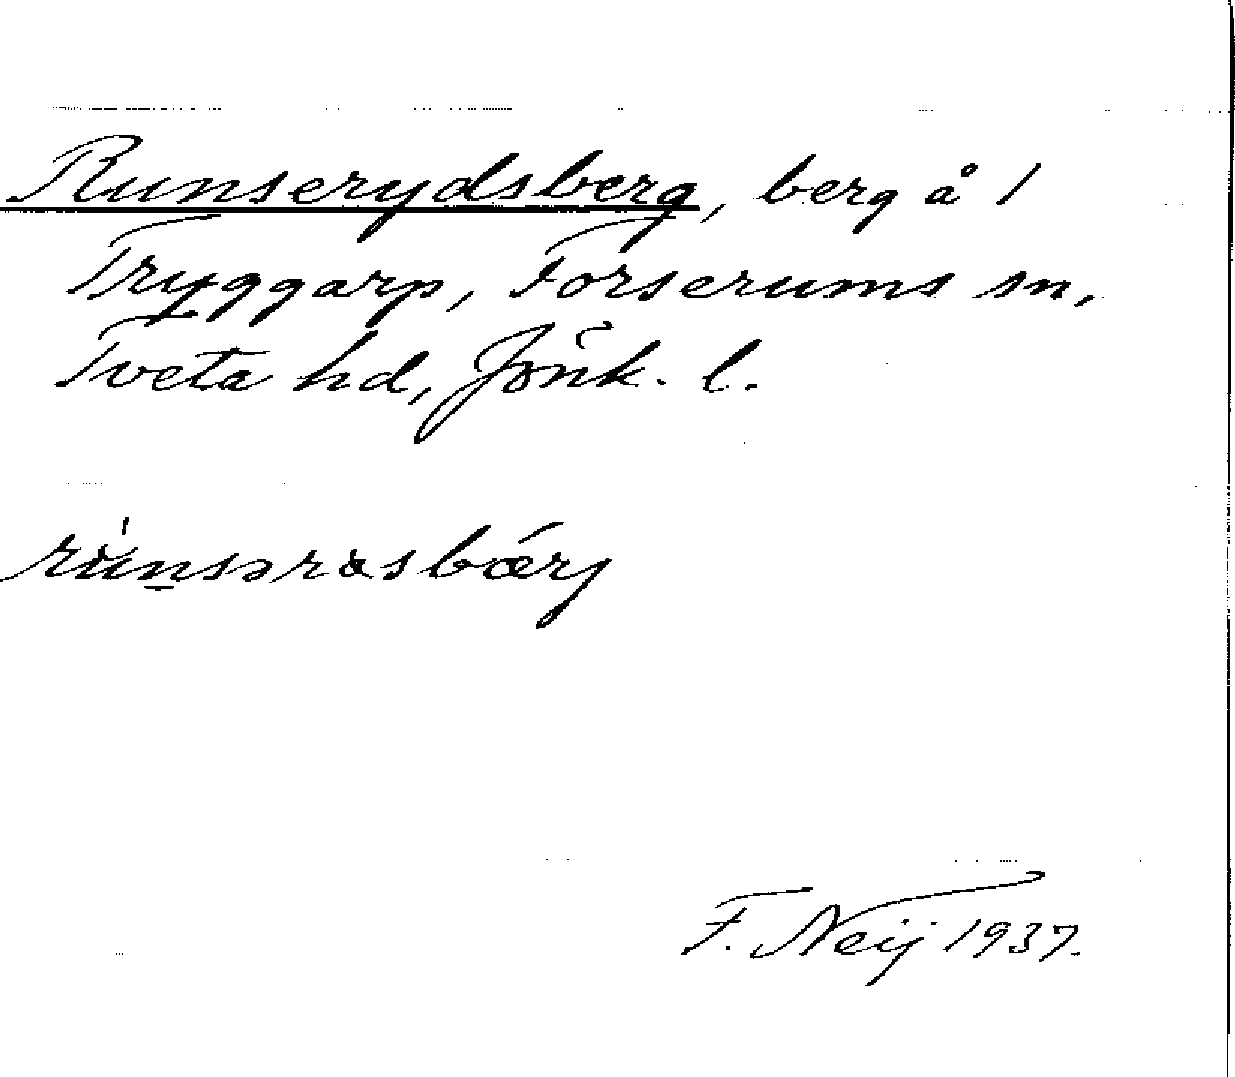 Runserydsberg, berg å 1
Tryggarp, Forserums sn,
Tveta hd, Jönk. l.
F. Neij 1937.